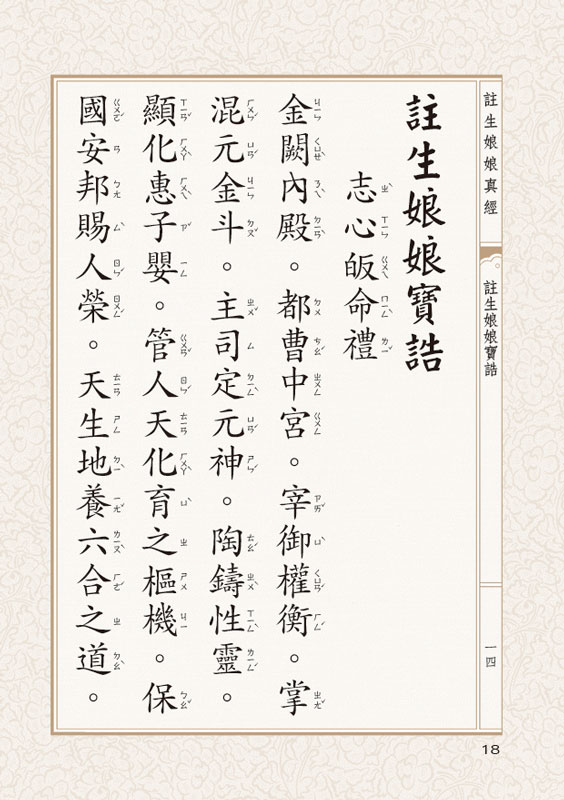 註生娘娘真經
註生娘娘寶誥
一四
註生娘娘寶誥
志心皈命禮
金闕內殿。都曹中宮。宰御權衡。掌
混元金斗。主司定元神。陶鑄性靈。
顯化惠子嬰。管人天化育之樞機。保
國安邦賜人榮。天生地養六合之道。
18